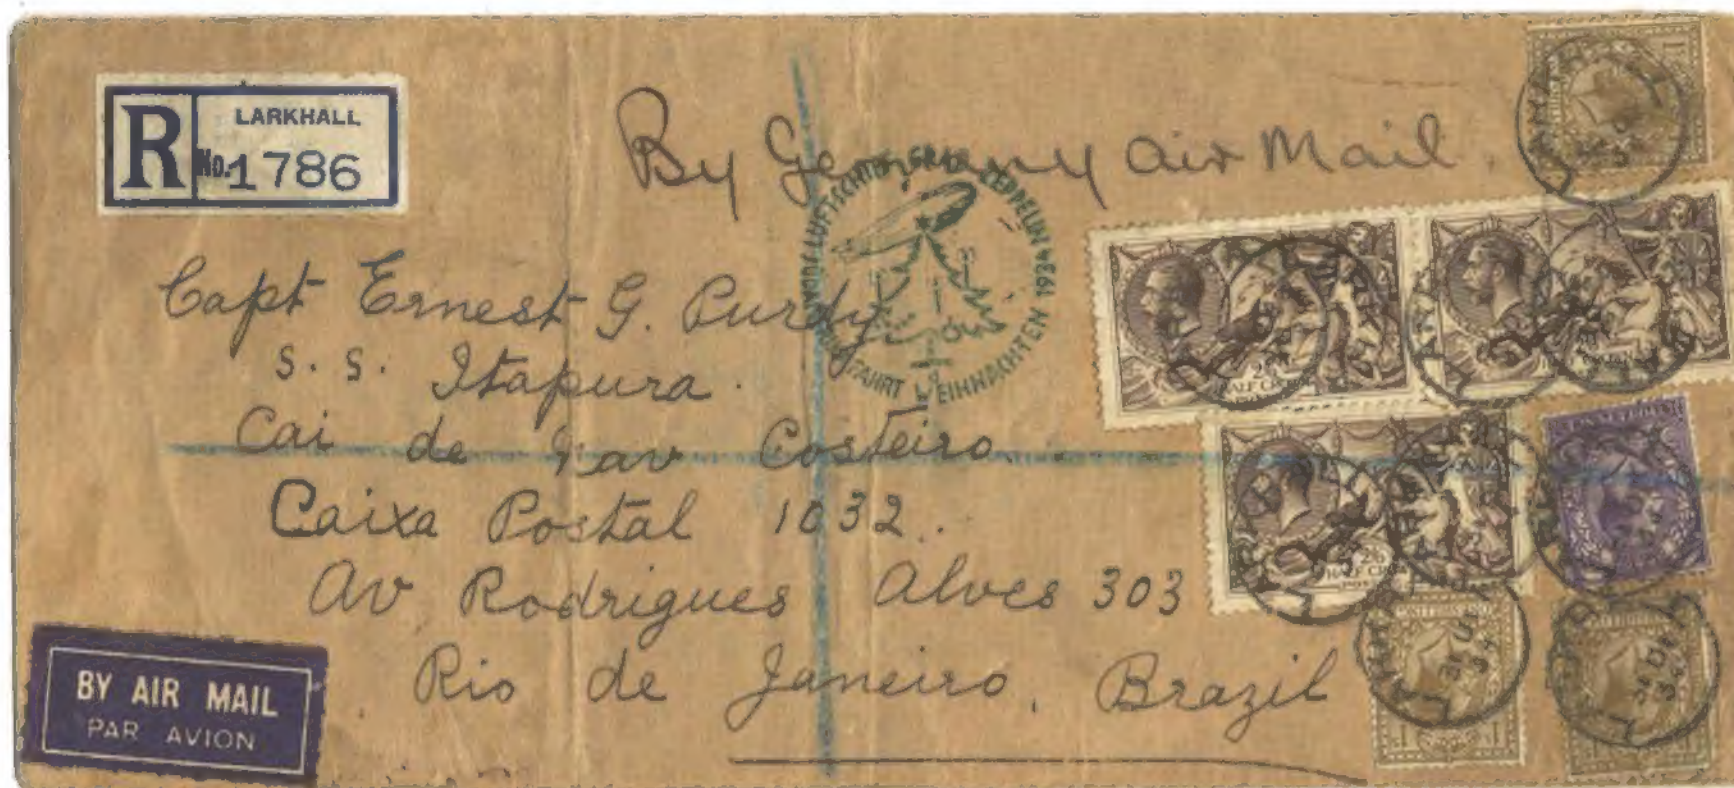 R
LARKHALL
No. 1786
By Germany Air Mail.
LUFTSCHIFF GRAF ZEPPELIN 1934
FAHRT WEIHNACHTEN
Capt Ernest G. Purdy.
S. S. Itapura.
Cai de Nav Costeiro.
Caixa Postal 1032.
Av Rodrigues Alves 303
Rio de Janeiro, Brazil
BY AIR MAIL
PAR AVION
HALF CROWN
HALF CROWN